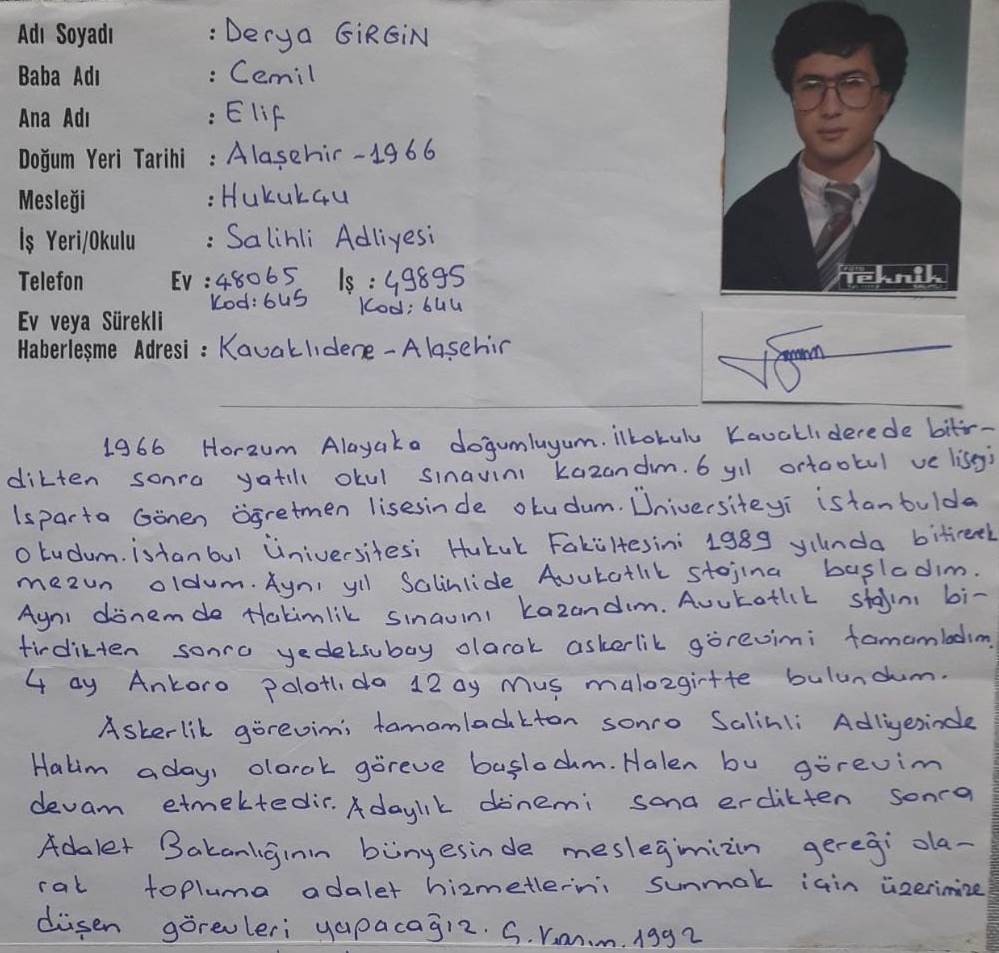 Adı Soyadı : Derya GİRGİN
Baba Adı : Cemil
Ana Adı : Elif
Doğum Yeri Tarihi : Alaşehir - 1966
Mesleği : Hukukçu
İş Yeri/Okulu : Salihli Adliyesi
Telefon Ev : 48065 İş : 49895
Kod: 645 Kod: 644
Ev veya Sürekli
Haberleşme Adresi : Kavaklıdere - Alaşehir
FOTO
Teknik
1966 Horzum Alayaka doğumluyum. İlkokulu Kavaklıderede bitir-
dikten sonra yatılı okul sınavını kazandım. 6 yıl ortaokul ve liseyi
Isparta Gönen öğretmen lisesinde okudum. Üniversiteyi istanbulda
okudum. istanbul Üniversitesi Hukuk Fakültesini 1989 yılında bitirerek
mezun oldum. Aynı yıl Salihlide Avukatlık stajına başladım.
Aynı dönemde Hakimlik sınavını kazandım. Avukatlık stajını bi-
tirdikten sonra yedeksubay olarak askerlik görevimi tamamladım.
4 ay Ankara polatlıda 12 ay Muş malazgirtte bulundum.
Askerlik görevimi tamamladıktan sonra Salihli Adliyesinde
Hakim adayı olarak göreve başladım. Halen bu görevim
devam etmektedir. Adaylık dönemi sona erdikten sonra
Adalet Bakanlığının bünyesinde mesleğimizin gereği ola-
rak topluma adalet hizmetlerini sunmak için üzerimize
düşen görevleri yapacağız. 5. Kasım. 1992